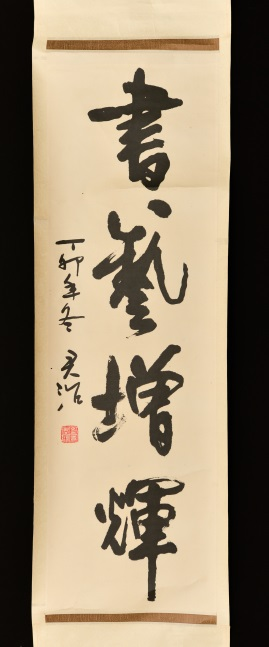 書藝增輝
丁卯年冬 君治